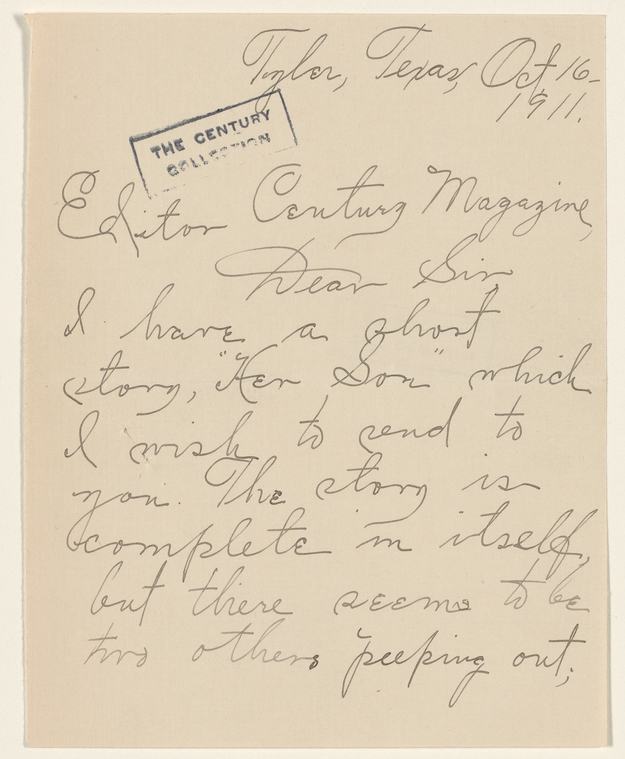 Tyler, Texas, Oct 16-
1911.
THE CENTURY
COLLECTION
Editor Century Magazine,
Dear Sir
I have a short
story, "Her Son" which
I wish to send to
you. The story is
complete in itself,
but there seems to be
two others peeping out;